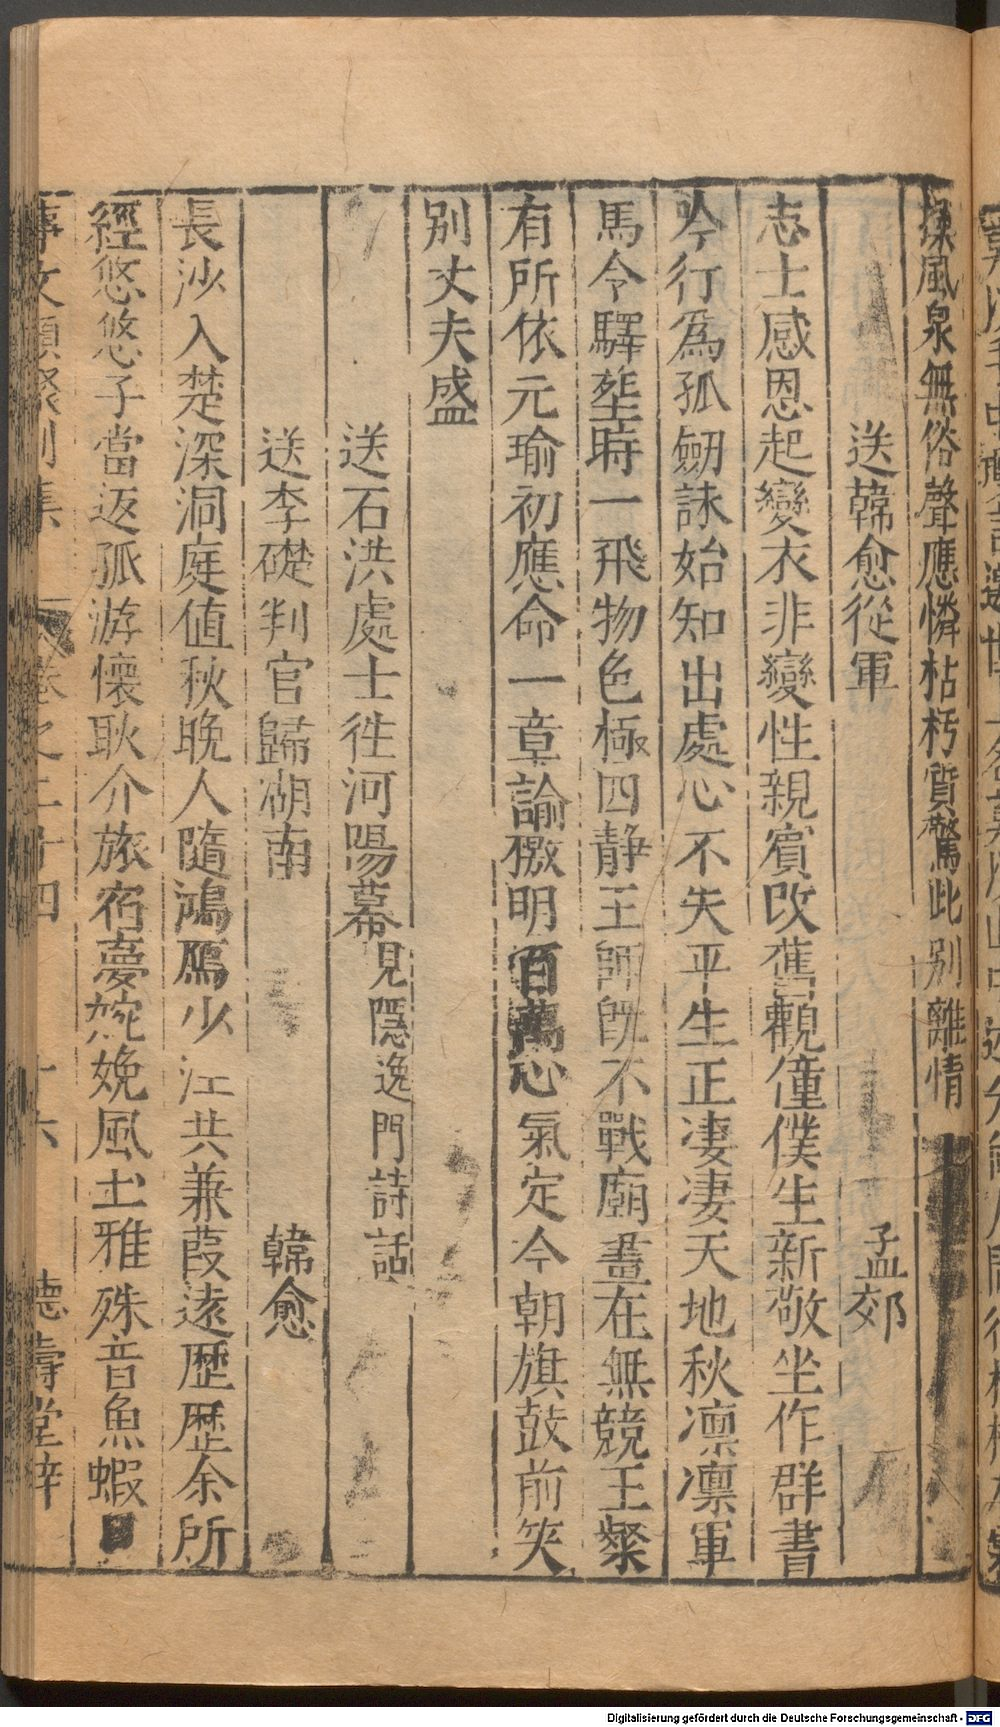 操風泉無俗聲應憐枯朽質驚此別離情
送韓愈從軍 孟郊
志士感恩起變衣非變性親賓改舊觀僮僕生新敬坐作群書
吟行爲孤劒詠始知出處心不失平生正凄凄天地秋凛凛軍
馬令驛塵時一飛物色極四静王師旣不戰廟畫在無競王粲
有所依元瑜初應命一章諭檄明百萬心氣定今朝旗鼓前笑
别丈夫盛
送石洪處士徃河陽幕見隱逸門詩話
送李礎判官歸湖南 韓愈
長沙入楚深洞庭值秋晚人隨鴻鴈少江共蒹葭遠歷歷余所
經悠悠子當返孤游懷耿介旅宿夢婉娩風土雅殊音魚蝦日
事文類聚別集 卷之二十四 十六 德壽堂梓
Digitalisierung gefördert durch die Deutsche Forschungsgemeinschaft - DFG